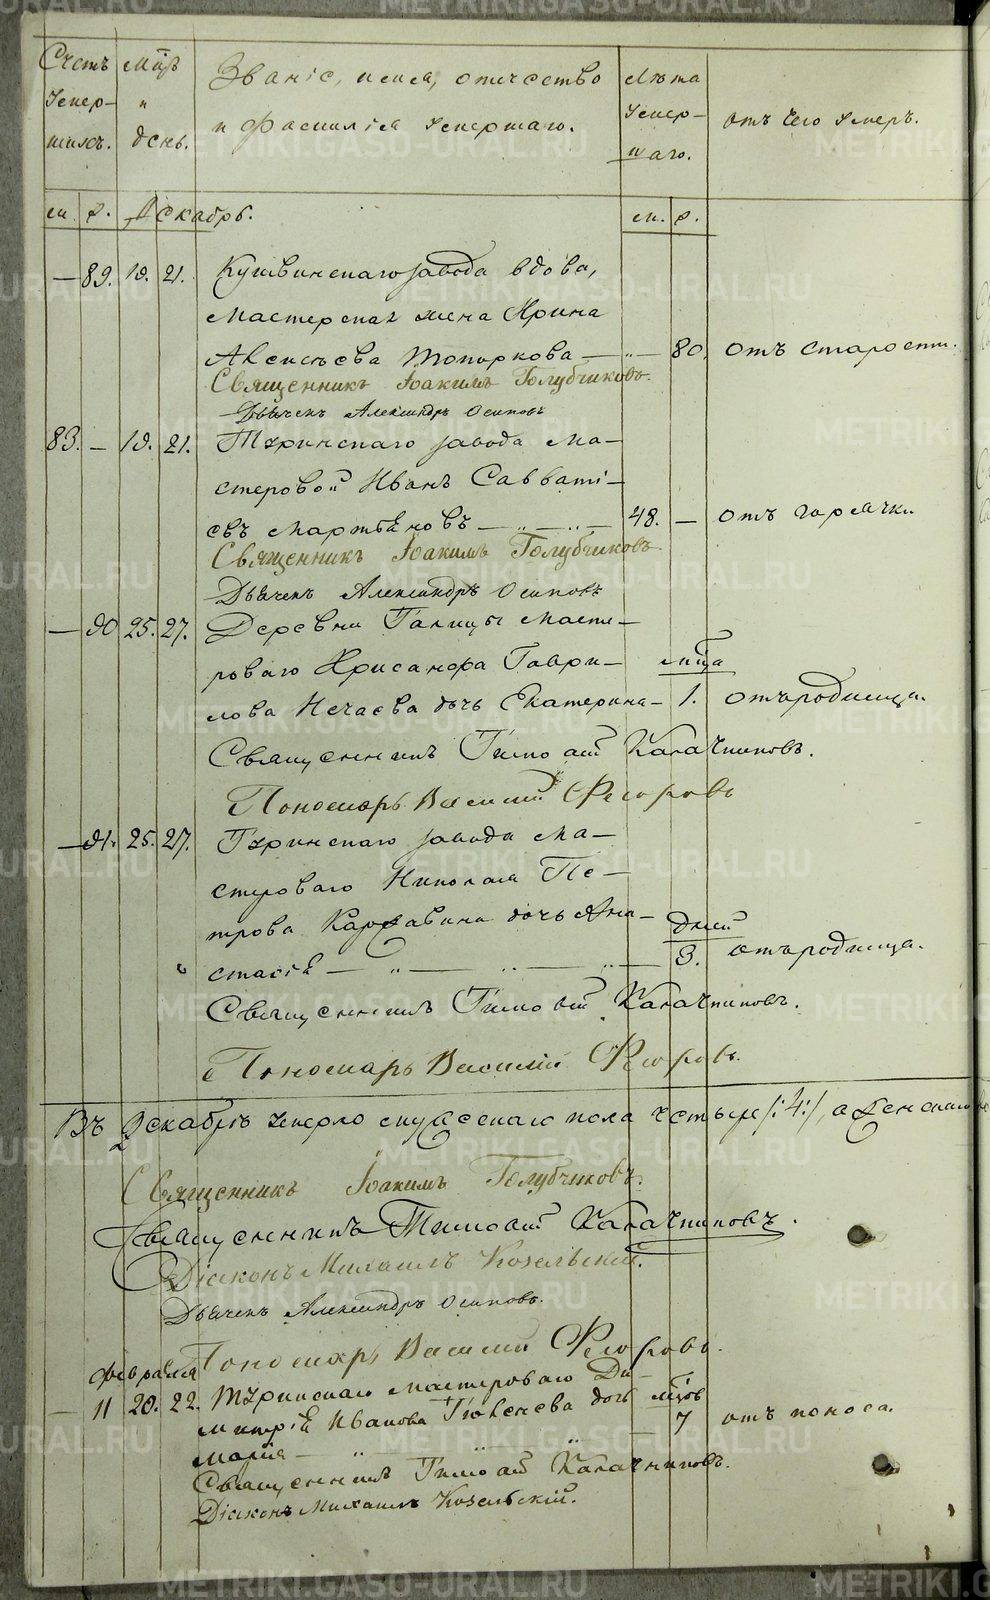 Счетъ Умер-шихъ. Мцъ и день. Званіе, имя, отчество и Фамилія Умершаго. Лѣта Умер-шаго. отъ чего Умеръ.
м. ж. Декабрь. м. ж.
— 89. 19. 21. Кушвинскаго завода вдова,
Мастерская жена Ирина
Авксентьева Топоркова — " — 80. отъ старости.
Священникъ Іоакимъ Голубчиковъ.
Дьячекъ Александръ Осиповъ
83. — 19. 21. Туринскаго завода Ма-
стеровой Иванъ Савваті-
евъ Мартьяновъ — " — " — 48. — отъ горячки
Священникъ Іоакимъ Голубчиковъ.
Дьячекъ Александръ Осиповъ
— 90 25. 27. Деревни Талицы Масте-
роваго Хрисанфа Гаври- мца
лова Нечаева дочь Екатерина — 1. отъ родимца.
Священникъ Тимофей Калачниковъ.
Пономарь Василій Федоровъ
— 91. 25. 27. Туринскаго завода Ма-
стероваго Николая Пе-
трова дочь Ана- дней
стасія — " — " — " — 3. отъ родимца.
Священникъ Тимофей Калачниковъ.
Пономарь Василій Федоровъ.
Въ Декабрѣ Умерло мужескаго пола четыре /:4:/, а женскаго
Священникъ Іоакимъ Голубчиковъ.
Священникъ Тимофей Калачниковъ.
Діаконъ Михаилъ Козельскій.
Дьячекъ Александръ Осиповъ.
Пономарь Василій Федоровъ.
февраля
— 11 20. 22. Туринскаго Мастероваго Ди-
митрія Иванова дочь мцов
Марія — " — " — " — 7 отъ поноса.
Священникъ Тимофей Калачниковъ.
Діаконъ Михаилъ Козельскій.
METRIKI.GASO-URAL.RU